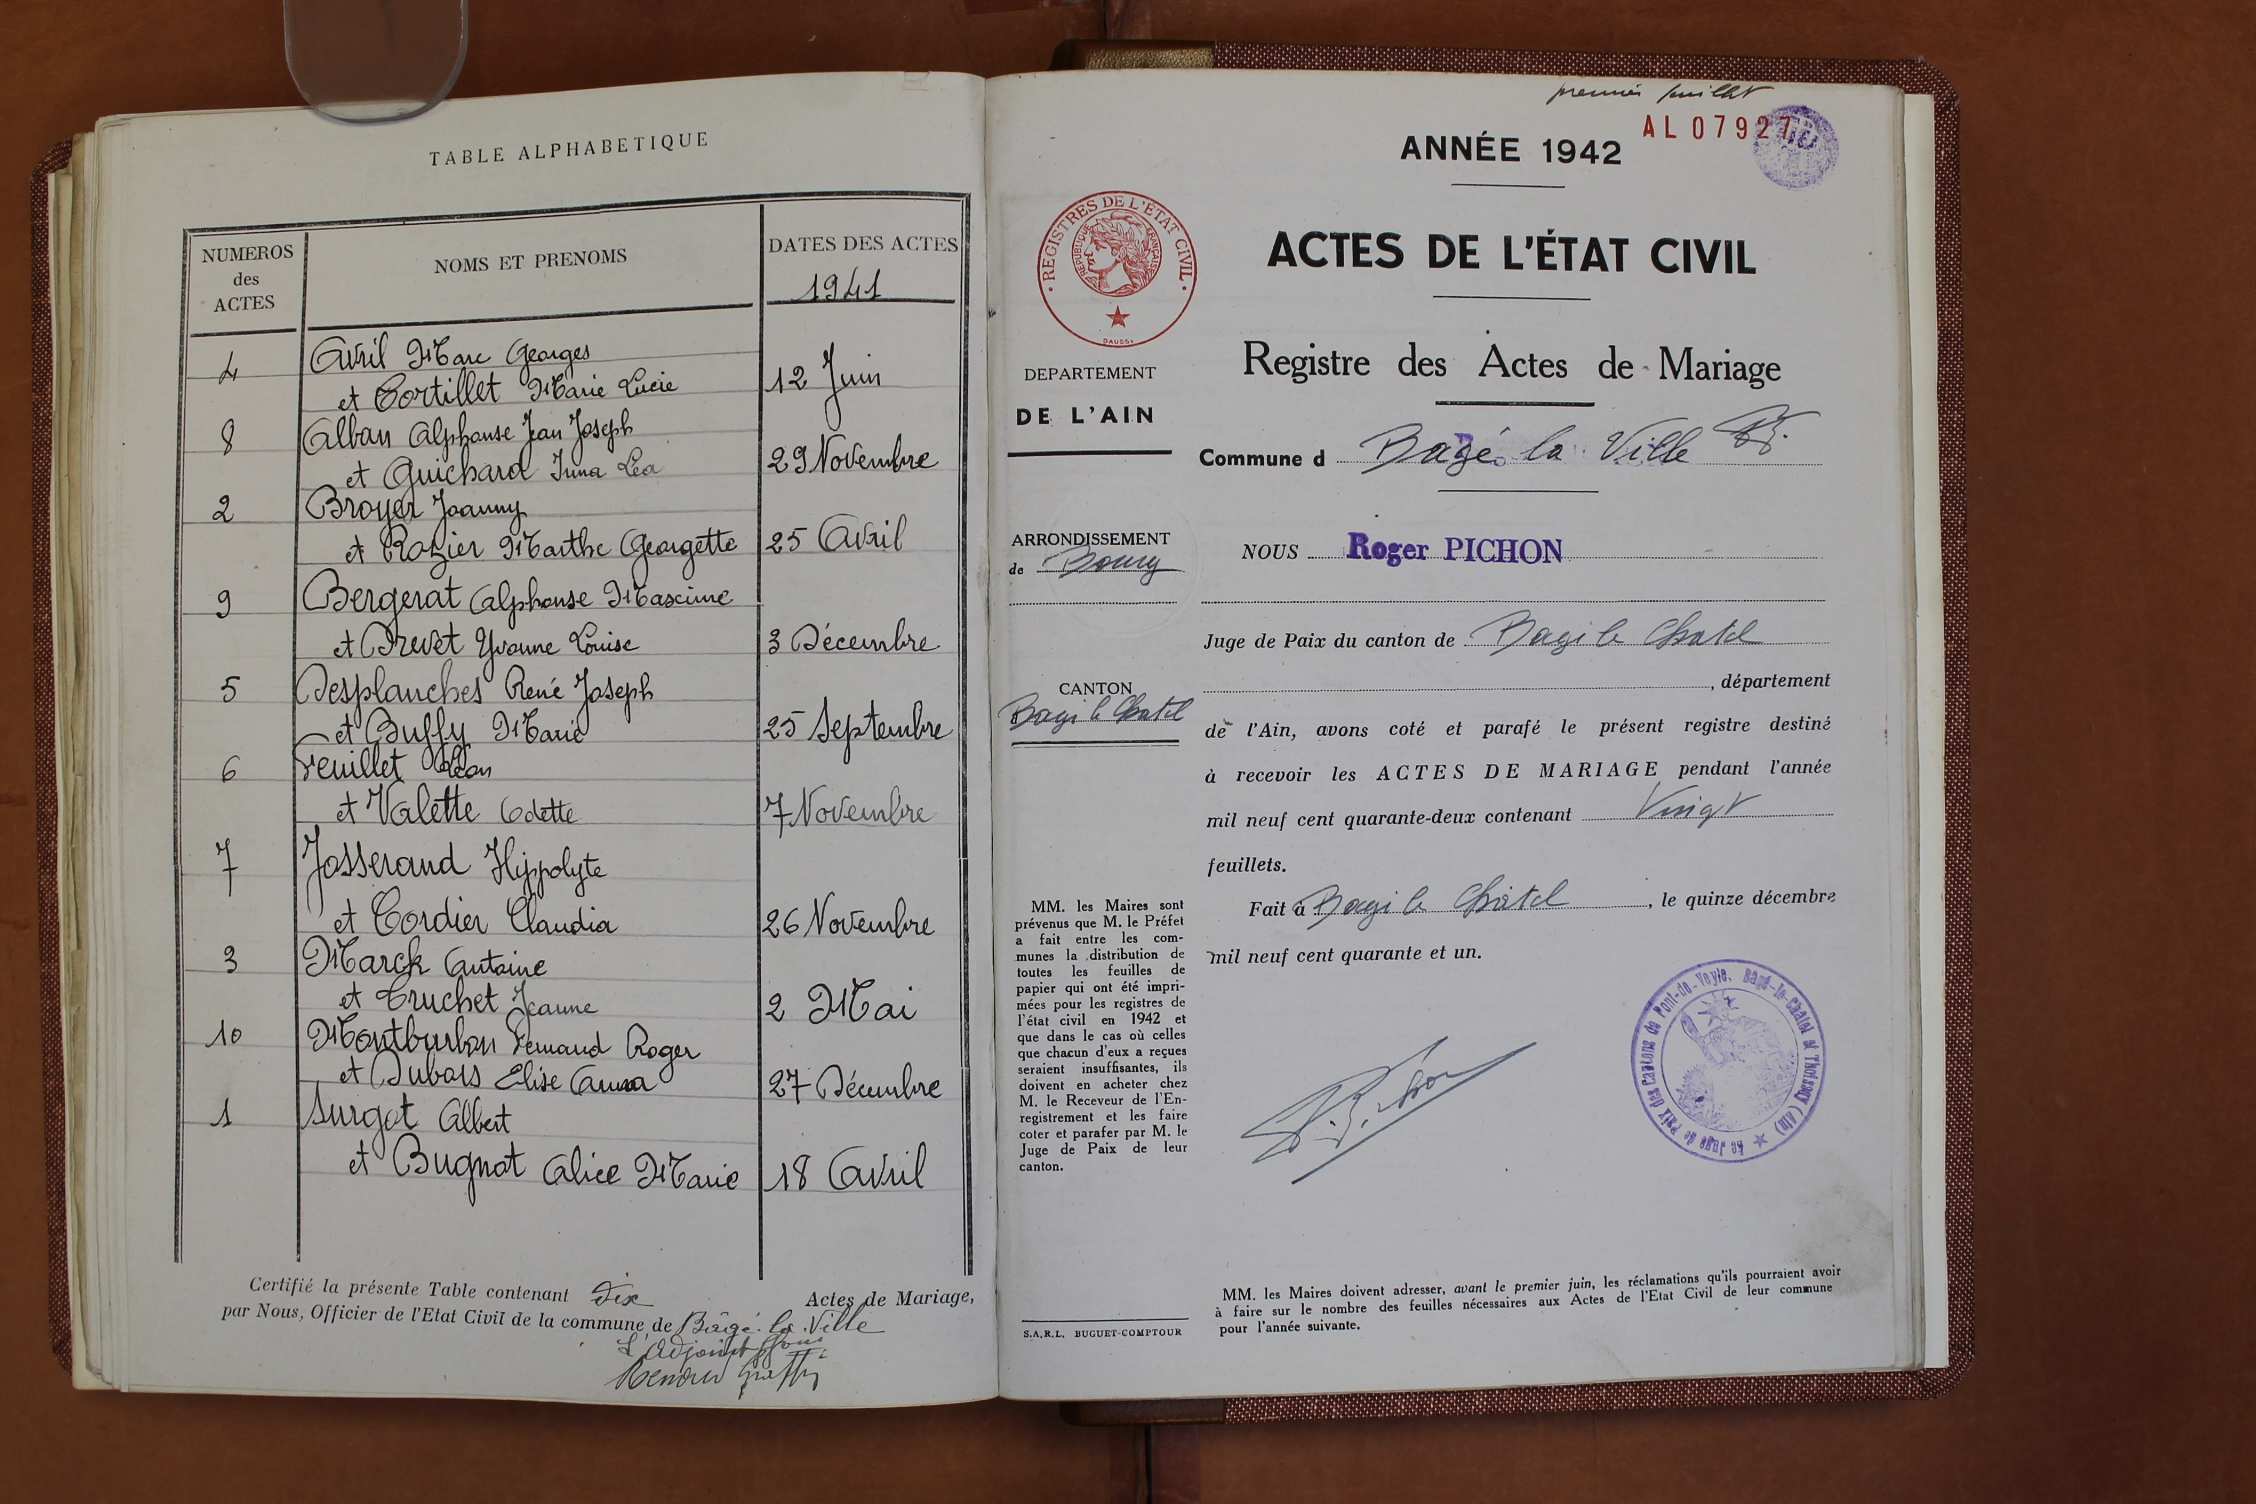 TABLE ALPHABETIQUE
NUMEROS des ACTES
NOMS ET PRENOMS
DATES DES ACTES
1941
4 Avril Marc Georges
et Cortillet Marie Lucie 12 Juin
8 Alban Alphonse Jean Joseph
et Guichard Irma Léa 29 Novembre
2 Broyer Joanny
et Rozier Marthe Georgette 25 Avril
9 Bergerat Alphonse Maxime
et Drevet Yvonne Louise 3 Décembre
5 Desplanches René Joseph
et Buffy Marie 25 Septembre
6 Feuillet Léon
et Valette Odette 7 Novembre
7 Josserand Hippolyte
et Cordier Claudia 26 Novembre
3 Marck Antoine
et Truchet Jeanne 2 Mai
10 Montburbon Fernand Roger
et Dubois Elise Anna 27 Décembre
1 Surgot Albert
et Bugnot Alice Marie 18 Avril
Certifié la présente Table contenant Dix Actes de Mariage,
par Nous, Officier de l'Etat Civil de la commune de Bâgé-la-Ville
L'Adjoint
premier feuillet
AL 07927
ANNÉE 1942
REGISTRES DE L'ÉTAT CIVIL
RÉPUBLIQUE FRANÇAISE
DAUSSY
ACTES DE L'ÉTAT CIVIL
Registre des Actes de Mariage
DEPARTEMENT
DE L'AIN
Commune d Bagé la Ville
ARRONDISSEMENT
de Bourg
NOUS Roger PICHON
Juge de Paix du canton de Bagé le Chatel
, département
CANTON
Bagé le Chatel
de l'Ain, avons coté et parafé le présent registre destiné
à recevoir les ACTES DE MARIAGE pendant l'année
mil neuf cent quarante-deux contenant Vingt
feuillets.
Fait à Bagé le Châtel, le quinze décembre
mil neuf cent quarante et un.
MM. les Maires sont
prévenus que M. le Préfet
a fait entre les com-
munes la distribution de
toutes les feuilles de
papier qui ont été impri-
mées pour les registres de
l'état civil en 1942 et
que dans le cas où celles
que chacun d'eux a reçues
seraient insuffisantes, ils
doivent en acheter chez
M. le Receveur de l'En-
registrement et les faire
coter et parafer par M. le
Juge de Paix de leur
canton.
Le Juge de Paix des Cantons de Pont-de-Veyle, Bagé-le-Chatel et Thoissey (Ain)
MM. les Maires doivent adresser, avant le premier juin, les réclamations qu'ils pourraient avoir
à faire sur le nombre des feuilles nécessaires aux Actes de l'Etat Civil de leur commune
pour l'année suivante.
S.A.R.L. BUGUET-COMPTOUR